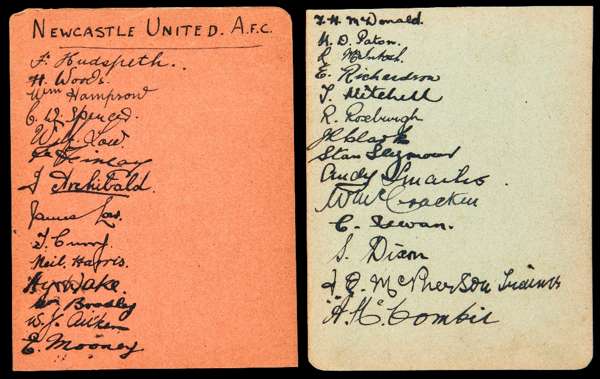 NEWCASTLE UNITED. A.F.C.
F. Hudspeth.
H. Woods.
Wm Hampson
C. W. Spencer
Will Low.
J. Archibald.
James Low.
T. Curry.
Neil Harris.
Hy Wake.
Wm Bradley
W. J. Aitken
E. Mooney
T. H. McDonald.
H. D. Paton.
R. McIntosh.
E. Richardson
T. Mitchell
R. Roxburgh
J R Clark
Stan Seymour
Andy Smailes
W McCracken
C. Dewan.
S. Dixon
J Q. McPherson Trainer
A. McCombie